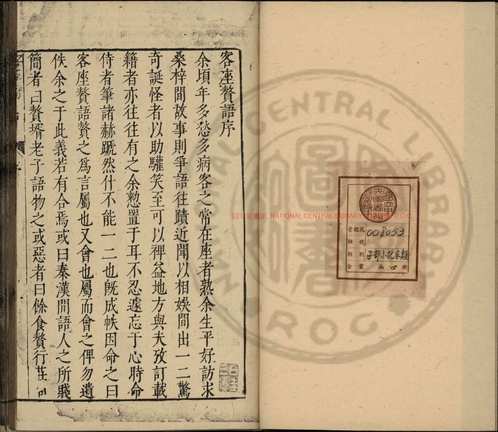 客座贅語序
余頃年多愁多病客之常在座者熟余生平好訪求
桑梓間故事則爭語往蹟近聞以相娛間出一二驚
奇誕怪者以助驩笑至可以裨益地方與夫攷訂載
籍者亦往往有之余愁置于耳不忍遽忘于心時命
侍者筆諸赫蹏然什不能一二也既成帙因命之曰
客座贅語贅之為言屬也又會也屬而會之俾勿遺
佚余之于此義若有合焉或曰秦漢間語人之所賤
簡者曰贅壻老子語物之或惡者曰餘食贅行莊
NATIONAL CENTRAL LIBRARY
R.O.C.
008052
子部小說家類